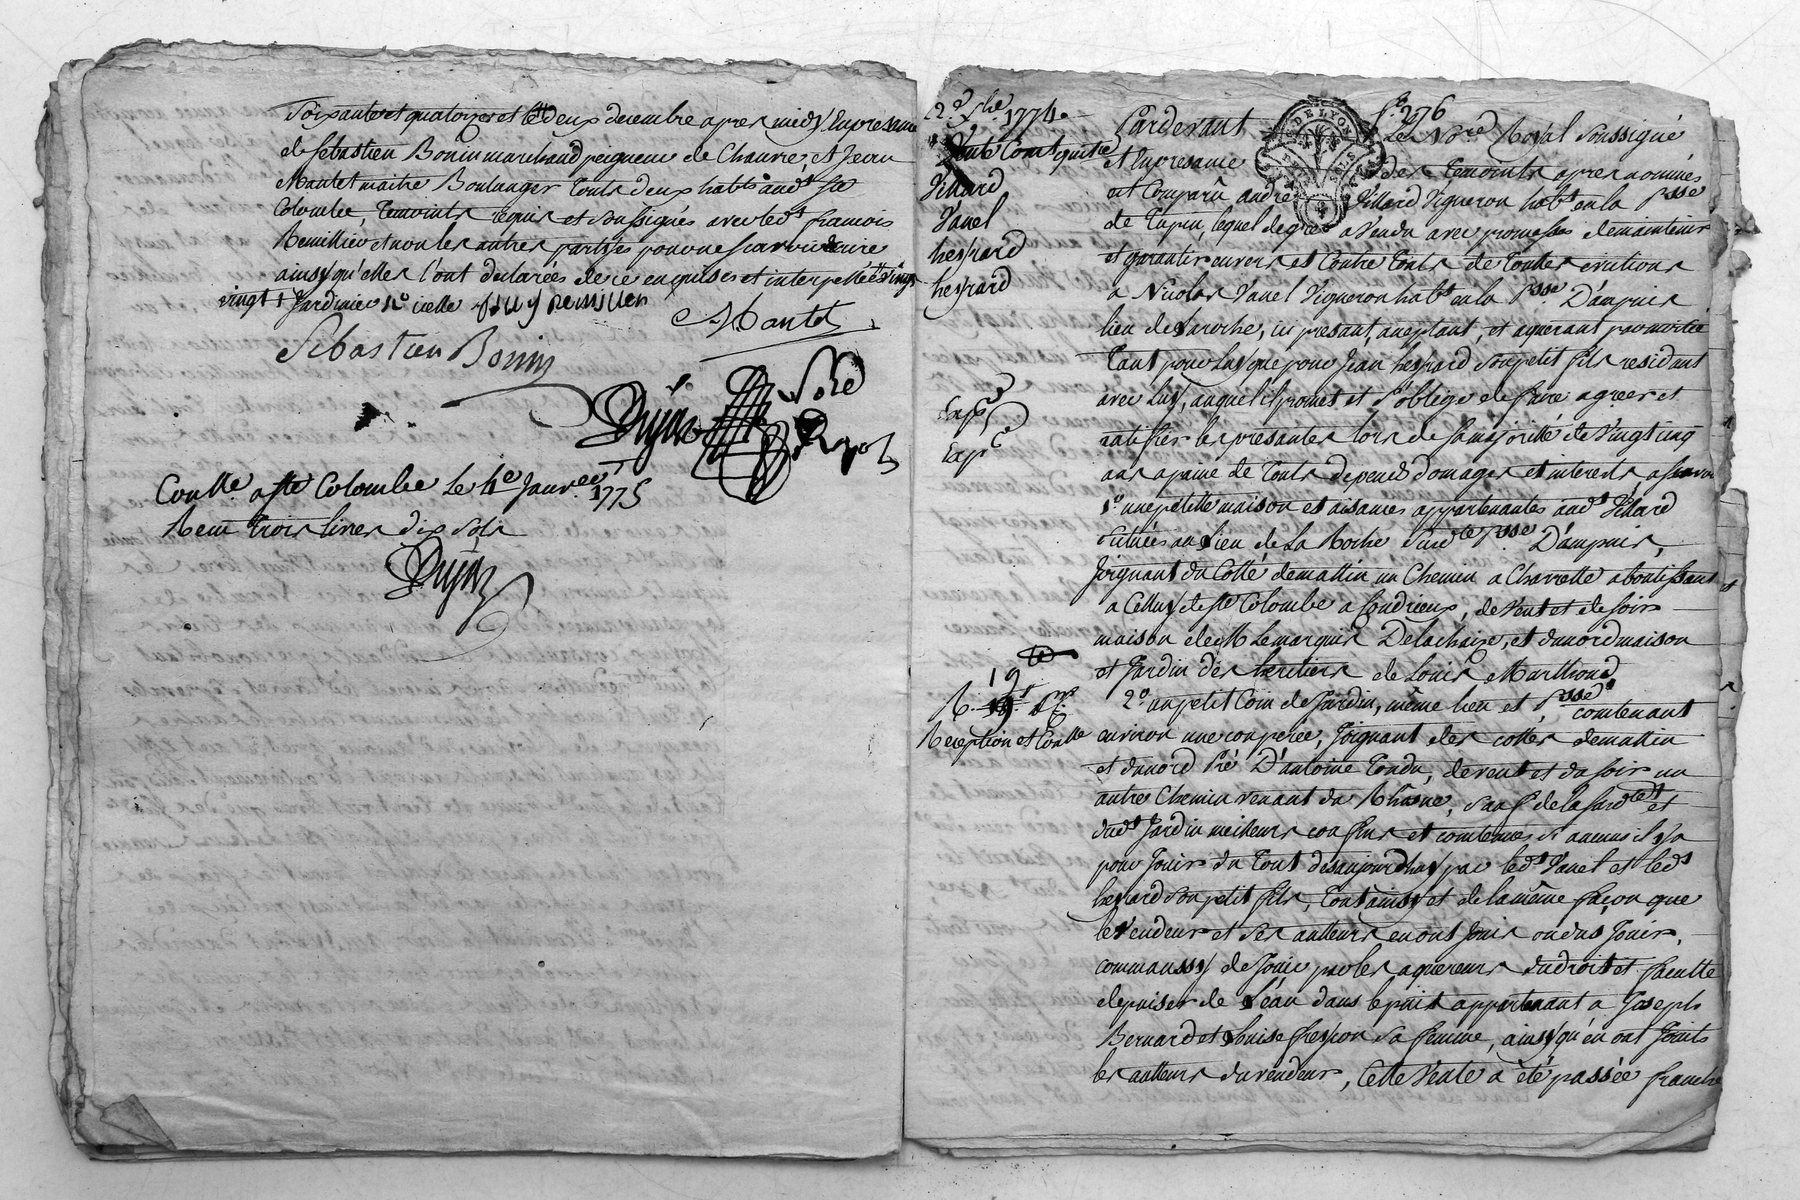 soixante et quatorze et le deux decembre apres midy En presence
de Sebastien Bonin marchand peigneur de Chanvre, et Jean
Mantel maitre Boulanger touts deux habts aud. Ste
Colombe, temoints requis et soussignés avec led. francois
Remillieu et non les autres parties pour ne scavoir ecrire
ainsy qu'elles l'ont declarées de ce enquises et interpellées
vingt Jardinier
Sebastien Bonin
Mantel
Dujas Nore Royal
Conlle a Ste Colombe le 4e Janvier 1775
Receu trois livres dix sols
Dujas
2.e Xbe. 1774.
fo. 276
Vente
Villard
Vanel
heyrard
heyrard
Expe
Expe
19
Reception et Conlle
DE LYON
Pardevant Le Nore Royal soussigné
et En presence des temoints apres nommés
est Comparu andré Villard Vigneron habt. en la Psse
de Tupin, lequel de gré a Vendu avec promesses de maintenir
et garantir envers et Contre touts de touttes evictions
a Nicolas Vanel Vigneron habt. en la Psse D'ampuis
lieu de Laroche, icy present, aceptant, et aquerant par moitié
tant pour Luy que pour Jean heyrard son petit fils residant
avec Luy, auquel il promet et s'oblige de faire agreer et
ratifier les presantes lors de sa majorité de Vingt cinq
ans a peine de touts depends domages et interets a scavoir
1.o une petitte maison et aisances appartenantes aud. Villard
situées au lieu de La Roche sus dte Psse D'ampuis,
Joignant du Cotté de mattin un Chemin a Charrette aboutissant
a Celluy de Ste Colombe a Condrieux, de Vent et de soir
maison de M. Le marquis Delachaize, et du nord maison
et Jardin des heritiers de Louis
2.o un petit Coin de Jardin, même lieu et Psse contenant
environ une couperée, Joignant des cottés de mattin
et du nord Pré D'antoine Tondu, de vent et du soir un
autre Chemin venant du Rhône, sauf de la susdte et
dud. Jardin meilleurs confins et contenues si aucuns il y a
pour Jouir du tout des aujourdhuy par led. Vanel et led.
heyrard son petit fils, tout ainsy et de la même façon que
le vendeur et ses autteurs en ont Jouis ou dus Jouir,
comm'aussy de Jouir par les aquereurs du droit et faculté
de puiser de L'éau dans le puit appartenant a Joseph
Bernard et Louise freyçon sa femme, ainsy qu'en ont Jouits
les autteurs du vendeur, Cette Vente a été passée franche